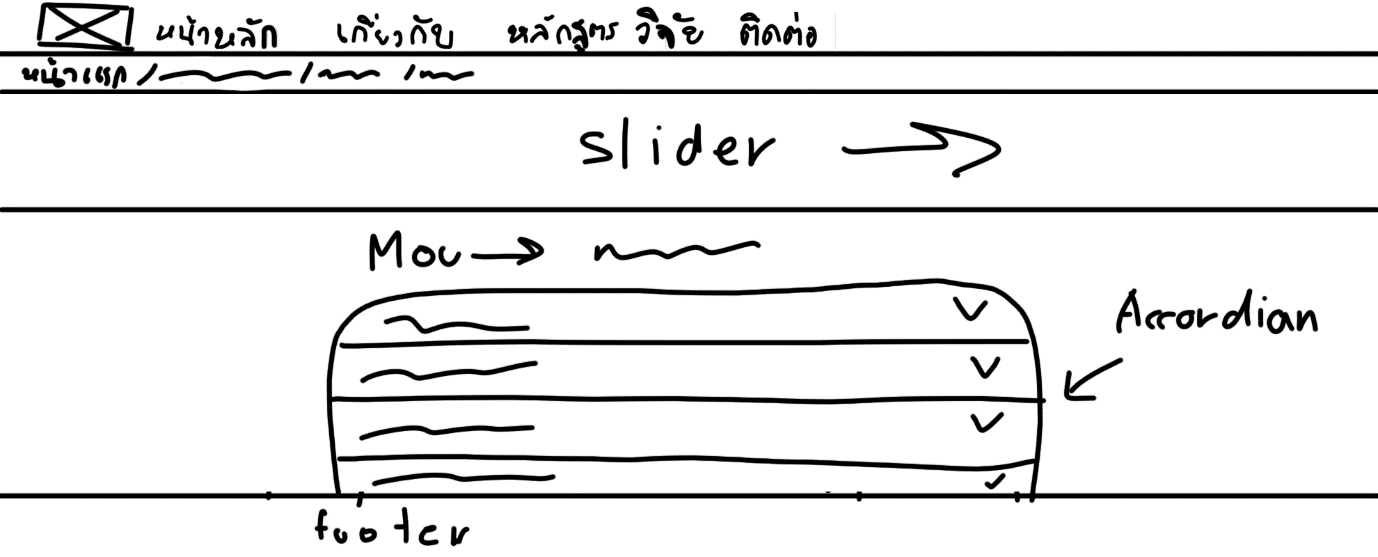 หน้าหลัก เกี่ยวกับ หลักสูตร วิจัย ติดต่อ
หน้าแรก / / /
slider
Mou
Accordian
footer